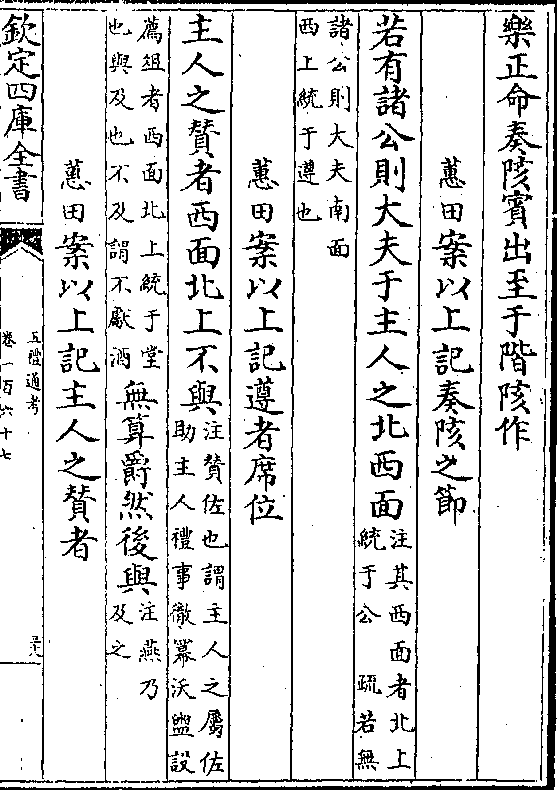 樂正命奏陔賓出至于階陔作
蕙田案以上記奏陔之節
若有諸公則大夫于主人之北西面注其西面者北上統于公 疏若無
諸公則大夫南面西上統于遵也
蕙田案以上記遵者席位
主人之贊者西面北上不與注贊佐也謂主人之屬佐助主人禮事徹冪沃盥設
薦俎者西面北上統于堂也與及也不及謂不獻酒無算爵然後與注燕乃及之
蕙田案以上記主人之贊者
欽定四庫全書
五禮通考
卷一百六十七